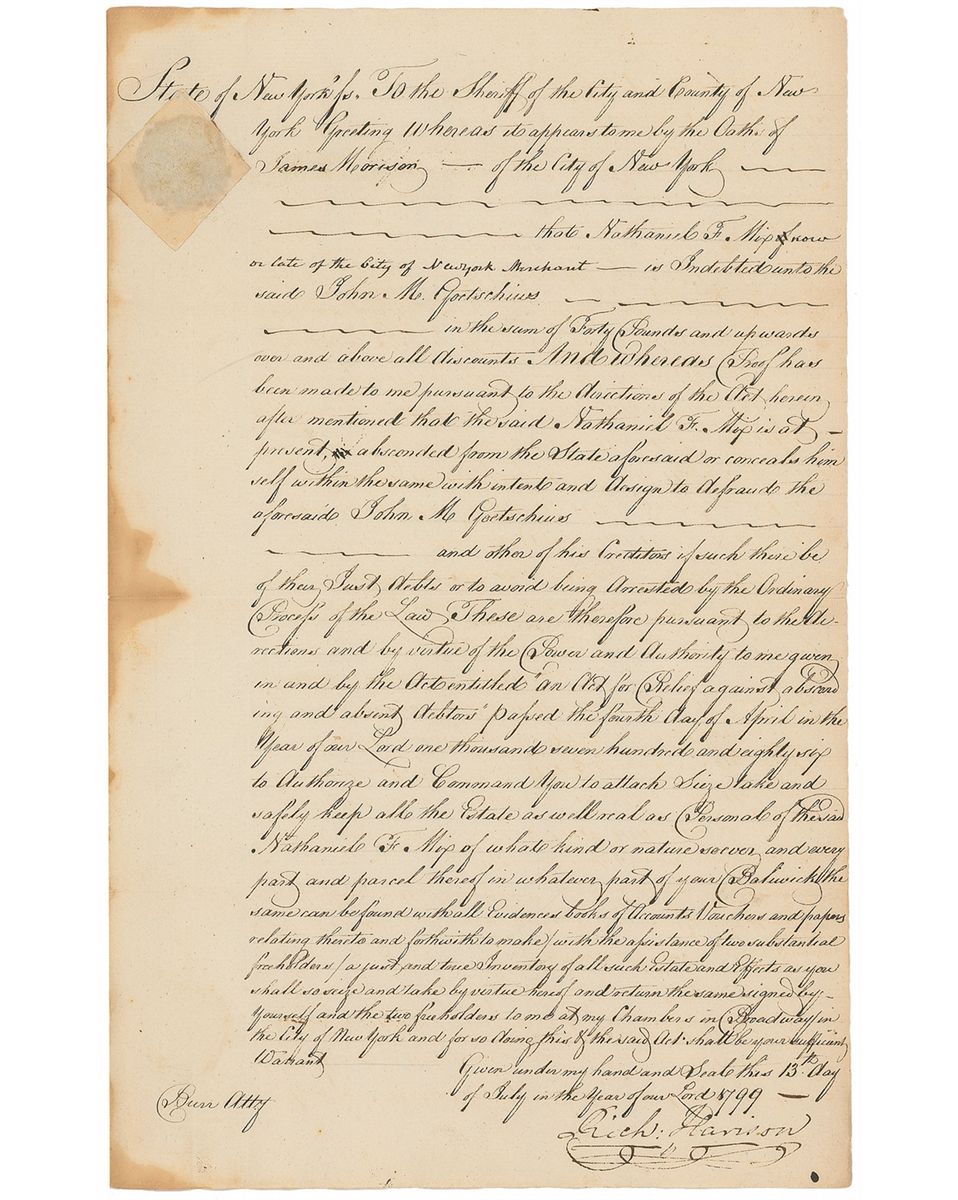 State of New York ss. To the Sheriff of the City and County of New
York Greeting Whereas it appears to me by the Oath of
James Morison — of the City of New York
that Nathaniel F. Mix now
or late of the City of Newyork Merchant — is Indebted unto the
said John M. Goetschius
in the sum of Forty Pounds and upwards
over and above all discounts And whereas Proof has
been made to me pursuant to the directions of the Act herein
after mentioned that the said Nathaniel F. Mix is at —
present absconded from the State aforesaid or conceals him
self within the same with intent and design to defraud the
aforesaid John M Goetschius
and other of his Creditors if such there be
of their Just debts or to avoid being Arrested by the Ordinary
Process of the Law These are therefore pursuant to the di-
rections and by virtue of the Power and Authority to me given
in and by the Act entitled "an Act for Relief against abscond
ing and absent debtors" passed the fourth day of April in the
Year of our Lord one thousand seven hundred and eighty six
to Authorize and Command You to attach Sieze take and
safely keep all the Estate as well real as Personal of the said
Nathaniel F Mix of what kind or nature soever and every
part and parcel thereof in whatever part of your Baliwick the
same can be found with all Evidences books of Accounts Vouchers and papers
relating thereto and forthwith to make (with the assistance of two substantial
freeholders) a just and true Inventory of all such Estate and Effects as you
shall so seize and take by virtue hereof and return the same signed by-
yourself and the two freeholders to me at my Chambers in Broadway in
the City of New York and for so doing this & the said Act shall be your sufficient
Warrant
Given under my hand and Seal this 13th day
of July in the Year of our Lord 1799 —
Burr Atty
Rich: Harison